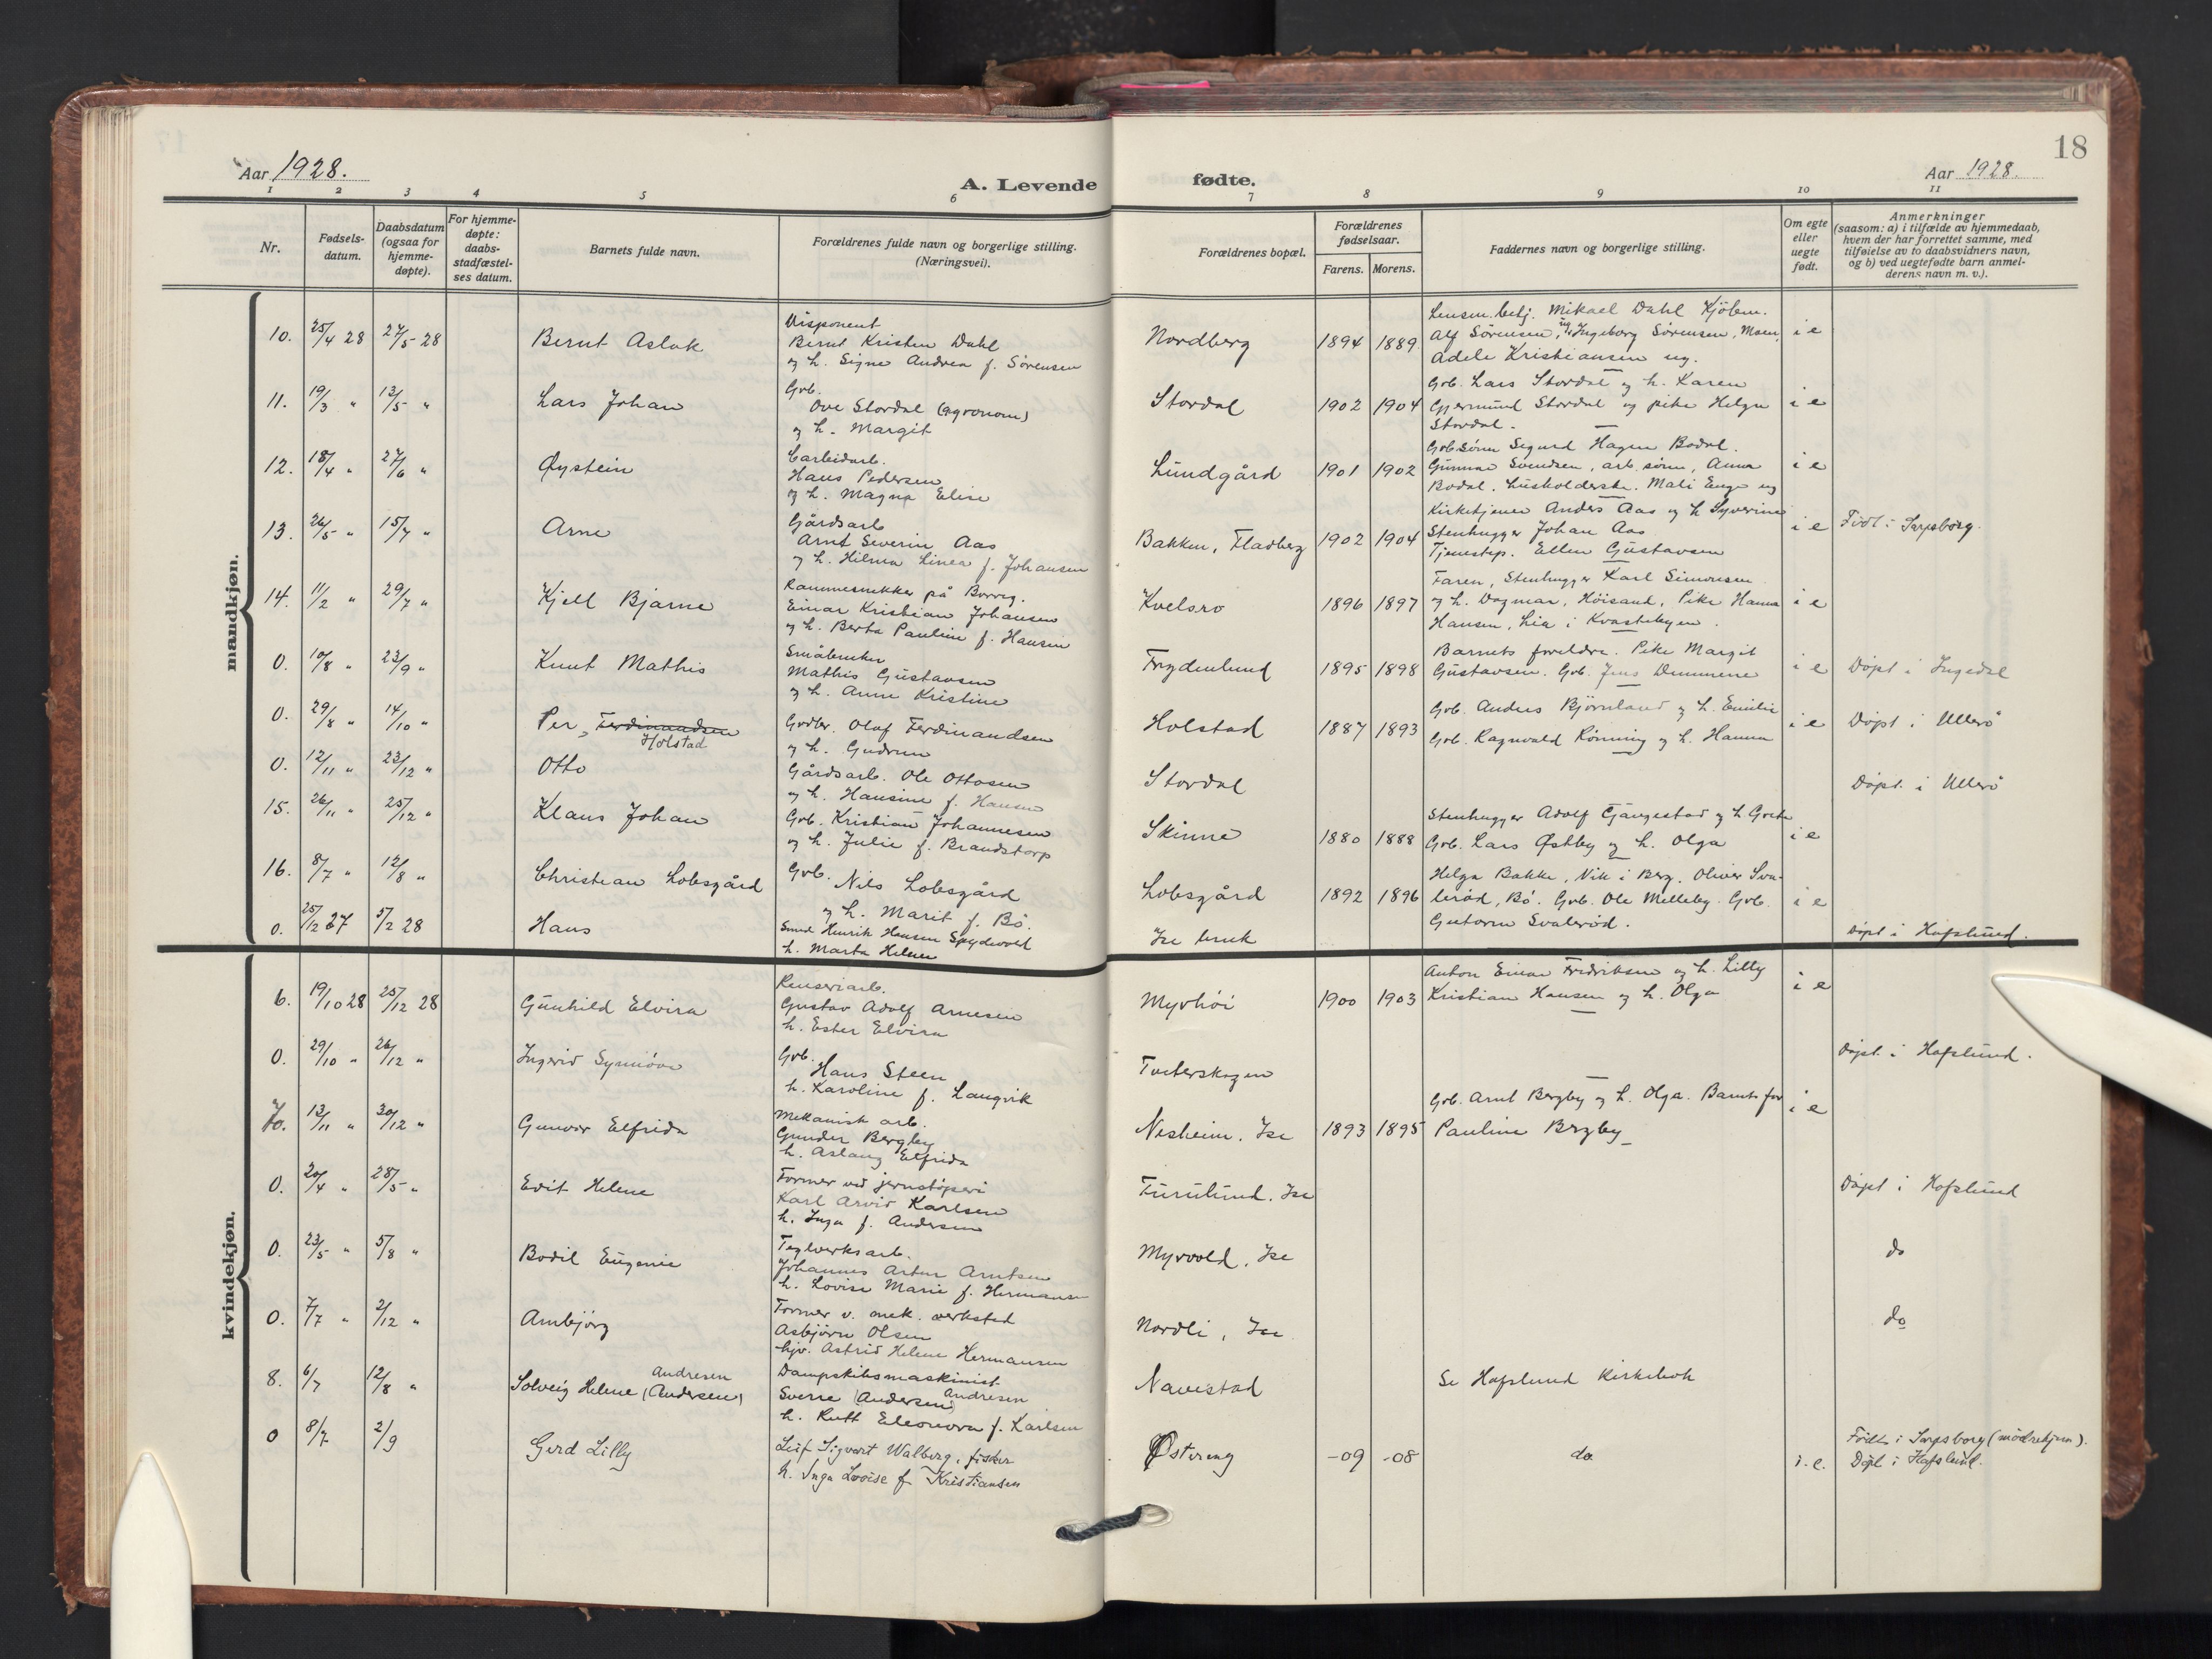 Aar 1928.
A. Levende fødte.
Aar 1928.
18
1 2 3 4 5 6 7 8 9 10 11
Nr.
Fødsels-
datum.
Daabsdatum
(ogsaa for
hjemme-
døpte).
For hjemme-
døpte:
daabs-
stadfæstel-
ses datum.
Barnets fulde navn.
Forældrenes fulde navn og borgerlige stilling.
(Næringsvei).
Forældrenes bopæl.
Forældrenes
fødselsaar.
Farens. Morens.
Faddernes navn og borgerlige stilling.
Om egte
eller
uegte
født.
Anmerkninger
(saasom: a) i tilfælde av hjemmedaab,
hvem der har forrettet samme, med
tilføielse av to daabsvidners navn,
og b) ved uegtefødte barn anmel-
derens navn m. v.).
mandkjøn.
10. 25/4 28 27/5 28 Bernt Aslak
Disponent
Bernt Kristen Dahl
og h. Signe Andrea f. Sørensen
Nordberg 1894 1889
Mikael Dahl
Alf Sørensen, Ingeborg Sørensen, Moen,
Adele Kristiansen ug.
i e
11. 19/3 " 13/5 " Lars Johan
Grb.
Ove Stordal (agronom)
og h. Margit
Stordal 1902 1904
Grb. Lars Stordal og h. Karen
Gjermund Stordal og pike Helga
Stordal.
i e
12. 18/4 " 27/6 " Øystein
Carbidarb.
Hans Pedersen
og h. Magna Elise
Lundgård 1901 1902
Grb.sønn Sigurd Hagen Bodal.
Gunnar Svendsen, arb. sønn, Anna
Bodal. Husholderske. Mali Enge ug
i e
13. 26/5 " 15/7 " Arne
Gårdsarb
Arnt Severin Aas
og h. Hilma Linea f. Johansen
Bakken, Fladberg 1902 1904
Kirketjener Anders Aas og h Syverine
Stenhugger Johan Aas
Tjenestep. Ellen Gustavsen
i e
Født i Sarpsborg.
14. 11/2 " 29/7 " Kjell Bjarne
Rammesnekker på Borreg.
Einar Kristian Johansen
og h. Berta Pauline f. Hansen
Kvelsro 1896 1897
Faren, Stenhugger Karl Simonsen
og h. Dagmar, Höisand, Pike Hanna
Hansen, Lia i Kvastebyen.
i e
0. 10/8 " 23/9 " Knut Mathis
Småbruker
Mathis Gustavsen
og h. Anne Kristine
Frydenlund 1895 1898
Barnets foreldre. Pike Margit
Gustavsen. Grb. Jens Demmene
i e
Döpt i Ingedal
0. 29/8 " 14/10 " Per, Ferdinandsen
Holstad
Grdbr. Olaf Ferdinandsen
og h. Gudrun
Holstad 1887 1893
Grb. Anders Björnland og h. Emilie
Grb. Ragnvald Rönning og h. Hanna
i e
Döpt i Ullerö
0. 12/11 " 23/12 " Otto
Gårdsarb. Ole Ottosen
og h. Hansine f. Hansen
Stordal
Döpt i Ullerö
15. 26/11 " 25/12 " Klaus Johan
Grb. Kristian Johannesen
og h. Julie f. Brandstorp
Skinne 1880 1888
Stenhugger Adolf Tjängestad og h Grete
Grb. Lars Østby og h. Olga
i e
16. 8/7 " 12/8 " Christian Lobsgård
Grb.
Nils Lobsgård
og h. Marit f. Bö.
Lobsgård 1892 1896
Helga Bakke, Vik i Berg. Oliver Sva-
leröd, Bö. Grb. Ole Melleby. Grb.
Guttorm Svaleröd.
i e
0. 25/12 27 5/2 28 Hans
Smed Henrik Hansen Spydevold
h. Marta Helene
Ise bruk
Döpt i Hafslund.
kvindekjøn.
6. 19/10 28 25/12 28 Gunhild Elvira
Renseriarb.
Gustav Adolf Arnesen
h. Ester Elvira
Myrhöi 1900 1903
Anton Einar Fredriksen og h. Lilly
Kristian Hansen og h. Olga
i e
0. 29/10 " 26/12 " Ingerid Synnöve
Grb.
Hans Steen
h. Karoline f. Langvik
Tveterskogen
Döpt i Hafslund.
7. 13/11 " 30/12 " Gunvor Elfrida
Mekanisk arb.
Gunder Bergby
h. Aslaug Elfrida
Nesheim. Ise 1893 1895
Grb. Arnt Bergby og h. Olga. Barnets for
Pauline Brgby
i e
0. 20/4 " 28/5 " Edit Helene
Former ved jernstöperi
Karl Arvid Karlsen
h. Inga f. Andersen
Furulund. Ise
Döpt i Hafslund
0. 23/5 " 5/8 " Bodil Eugenie
Teglverksarb.
Johannes Artur Arntsen
h. Lovise Marie f. Hermansen
Myrvold, Ise
do
0. 7/7 " 2/12 " Arnbjörg
Former v. mek. verksted
Asbjörn Olsen
hjv. Astrid Helene Hermansen
Nordli, Ise
do
8. 6/7 12/8 " Solveig Helene (Andersen) Andresen
Dampskibsmaskinist
Sverre (Andersen) Andresen
h. Rutt Eleonora f. Karlsen
Navestad
Se Hafslund Kirkebok
0 8/7 2/9 Gerd Lilly
Leif Sigvart Walberg, fisker
h. Inga Lovise f Kristiansen
Østereng -09 -08
do.
i. e.
Födt i Sarpsborg (mödrehjem).
Döpt i Hafslund.